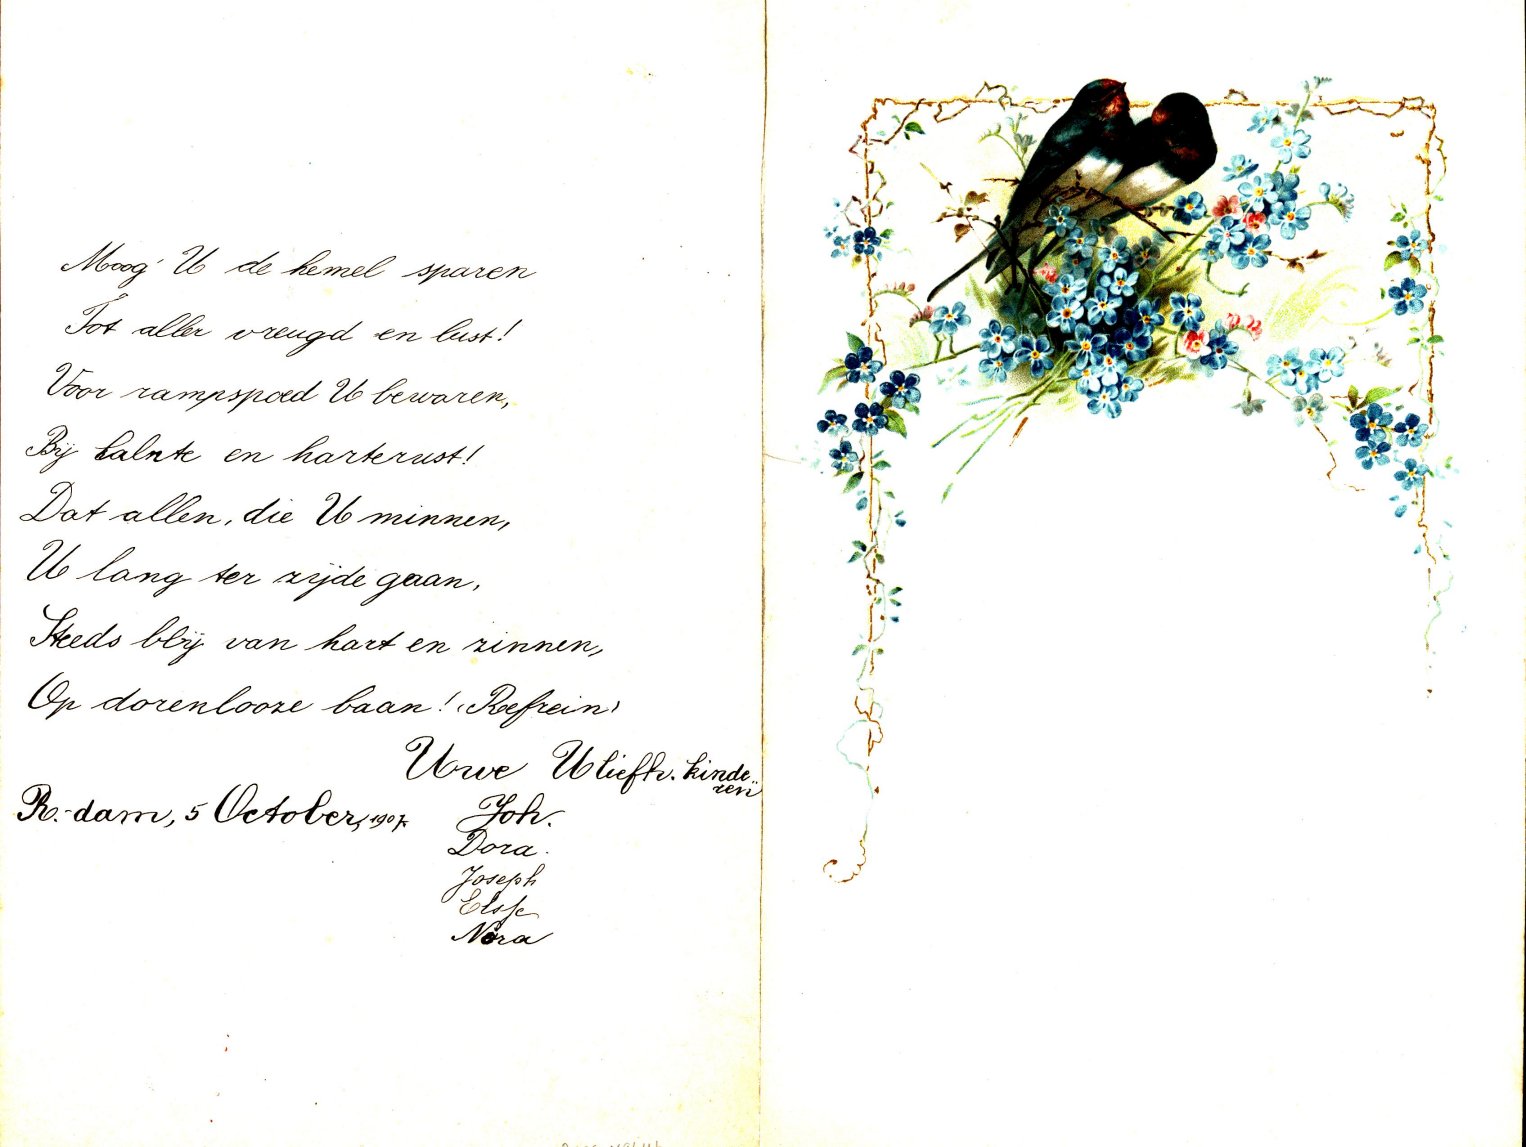 Moog' U de hemel sparen
Tot aller vreugd en lust!
Voor rampspoed U bewaren,
Bij kalmte en harterust!
Dat allen, die U minnen,
U lang ter zijde gaan,
Steeds blij van hart en zinnen,
Op dorenlooze baan! (Refrein)
Uwe U liefh. kinde-
ren
R.-dam, 5 October, 1907. Joh.
Dora.
Joseph
Elsje
Nora